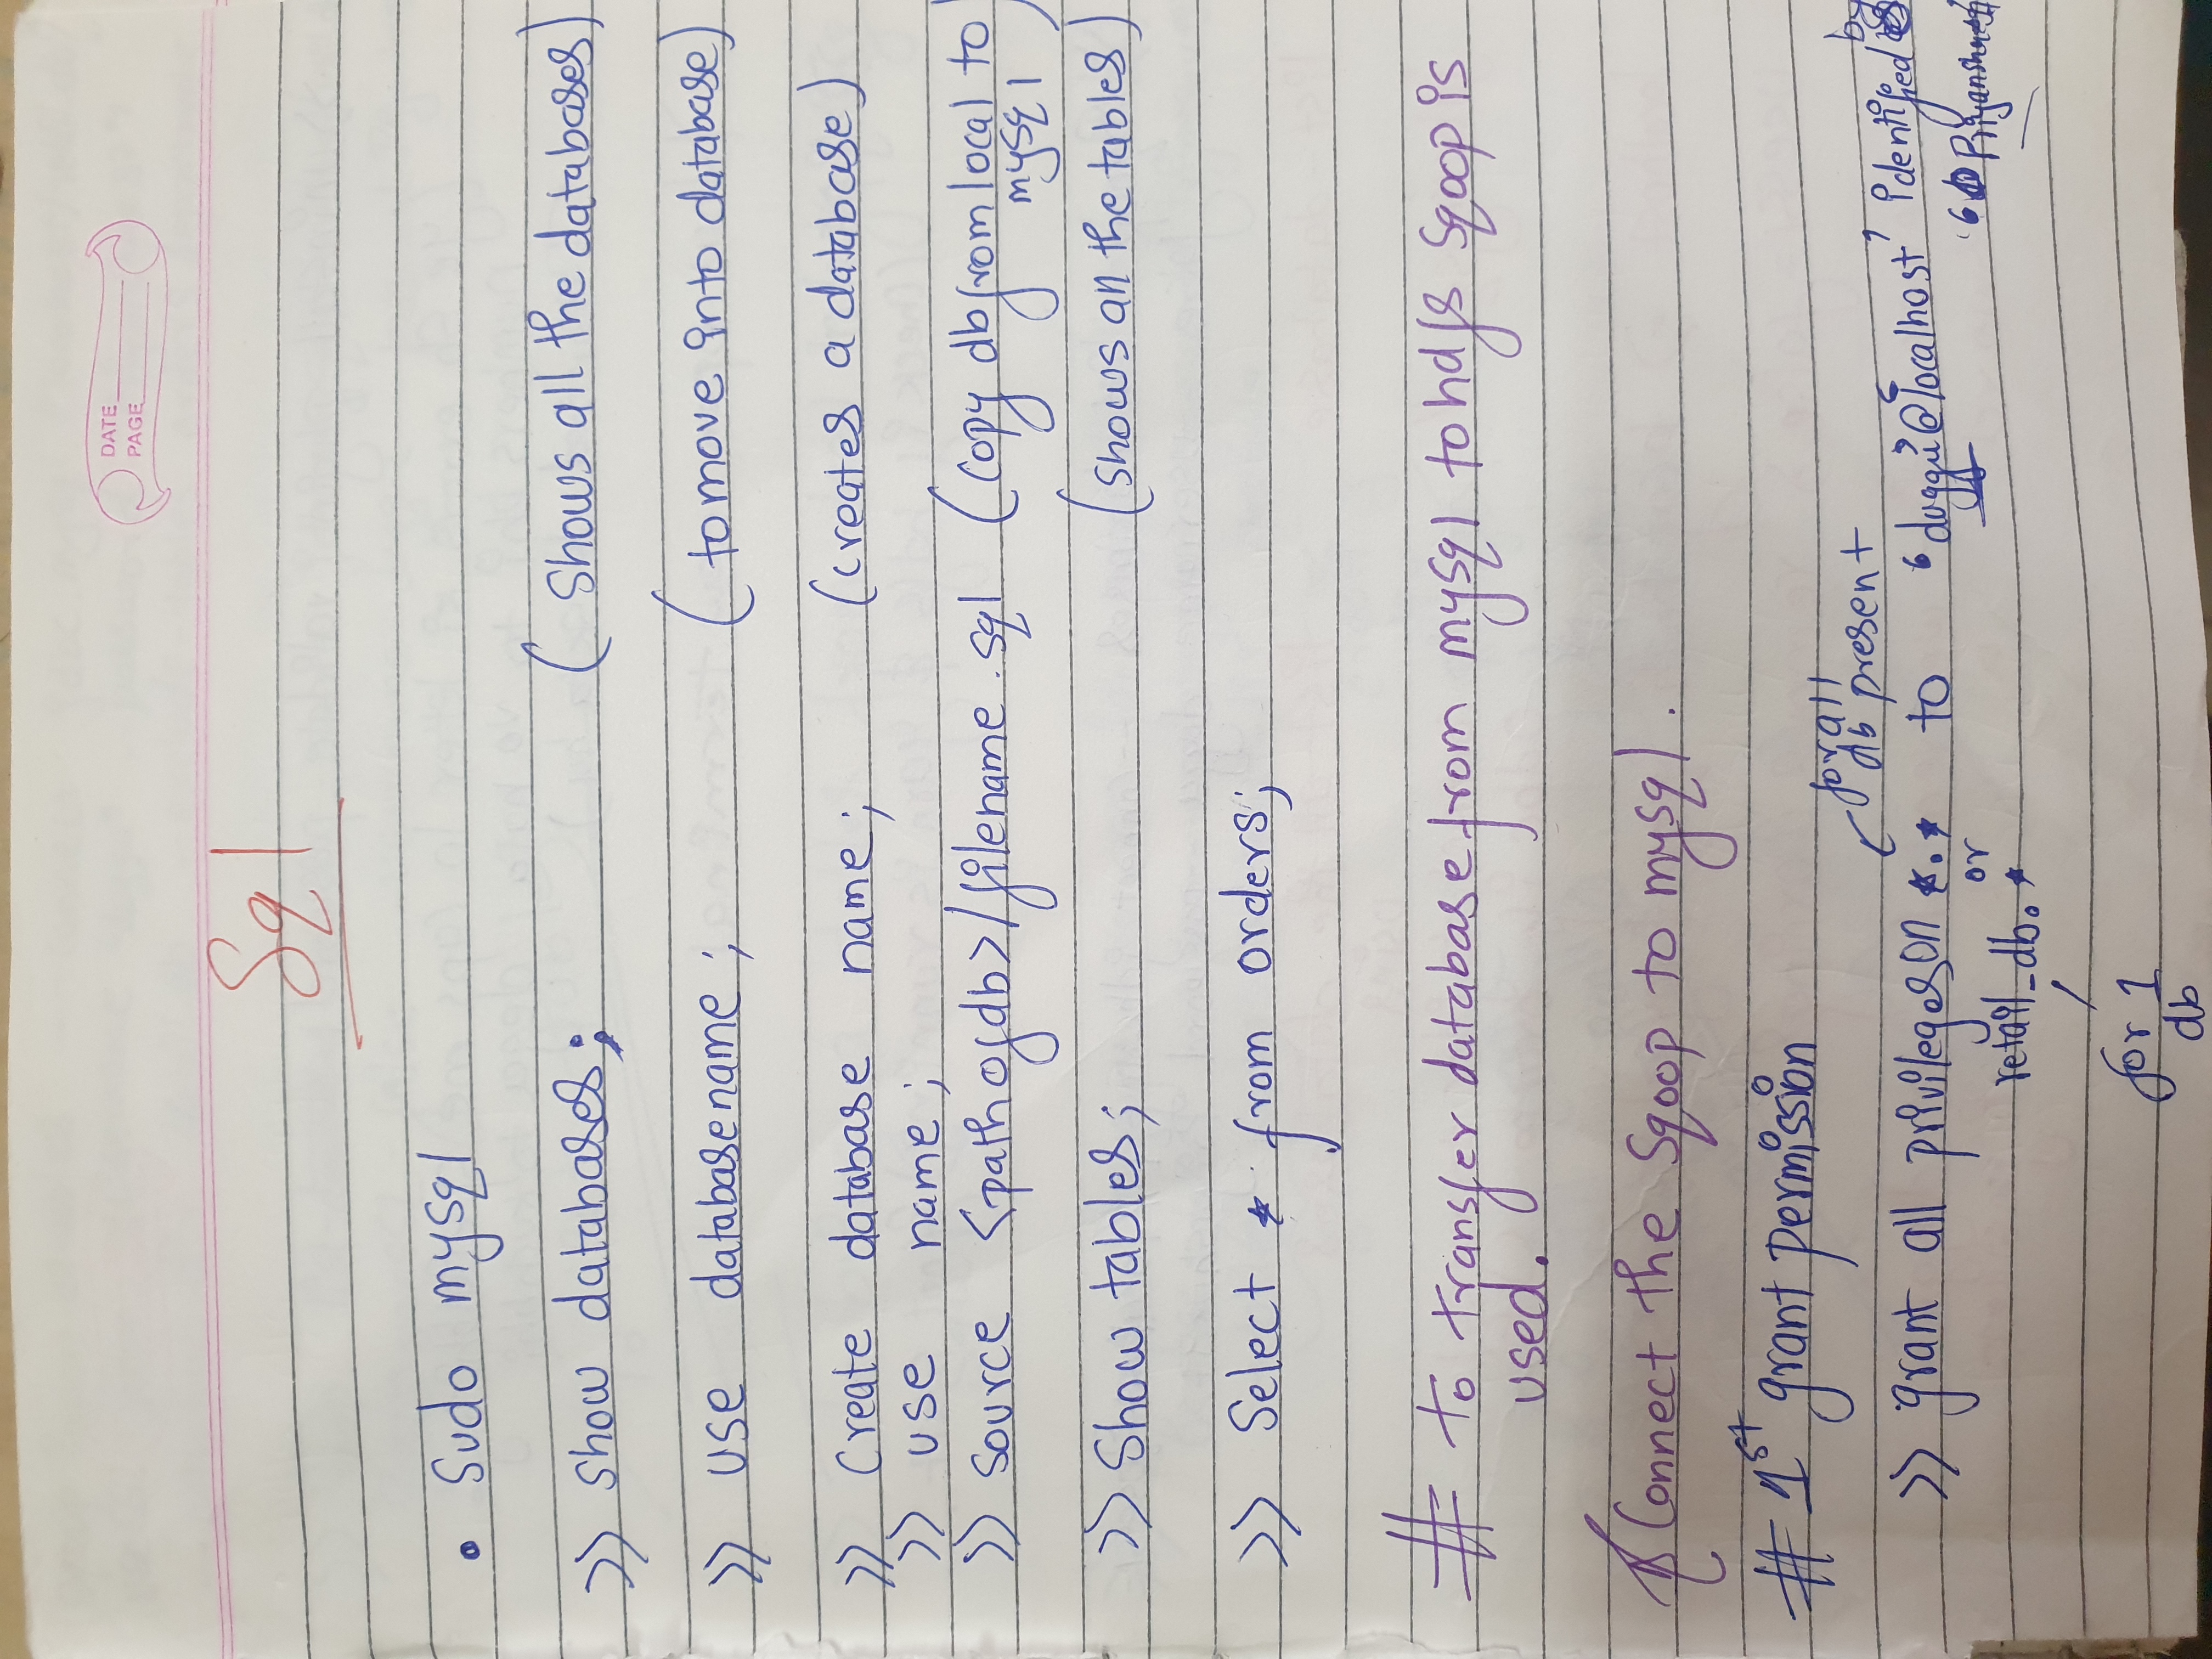 DATE
PAGE
Sql
• Sudo mysql
>> show databases; (Shows all the databases)
>> use databasename; (to move into database)
>> Create database name; (creates a database)
>> use name;
>> source <path of db>/filename.sql (copy db from local to
mysql)
>> Show tables; (shows all the tables)
>> Select * from orders;
# to transfer database from mysql to hdfs Sqoop is
used.
Connect the Sqoop to mysql.
# 1st grant permission
for all
db present
>> grant all privileges on *.* to 'duggu'@'localhost' identified by
or
retail_db.*
for 1
db